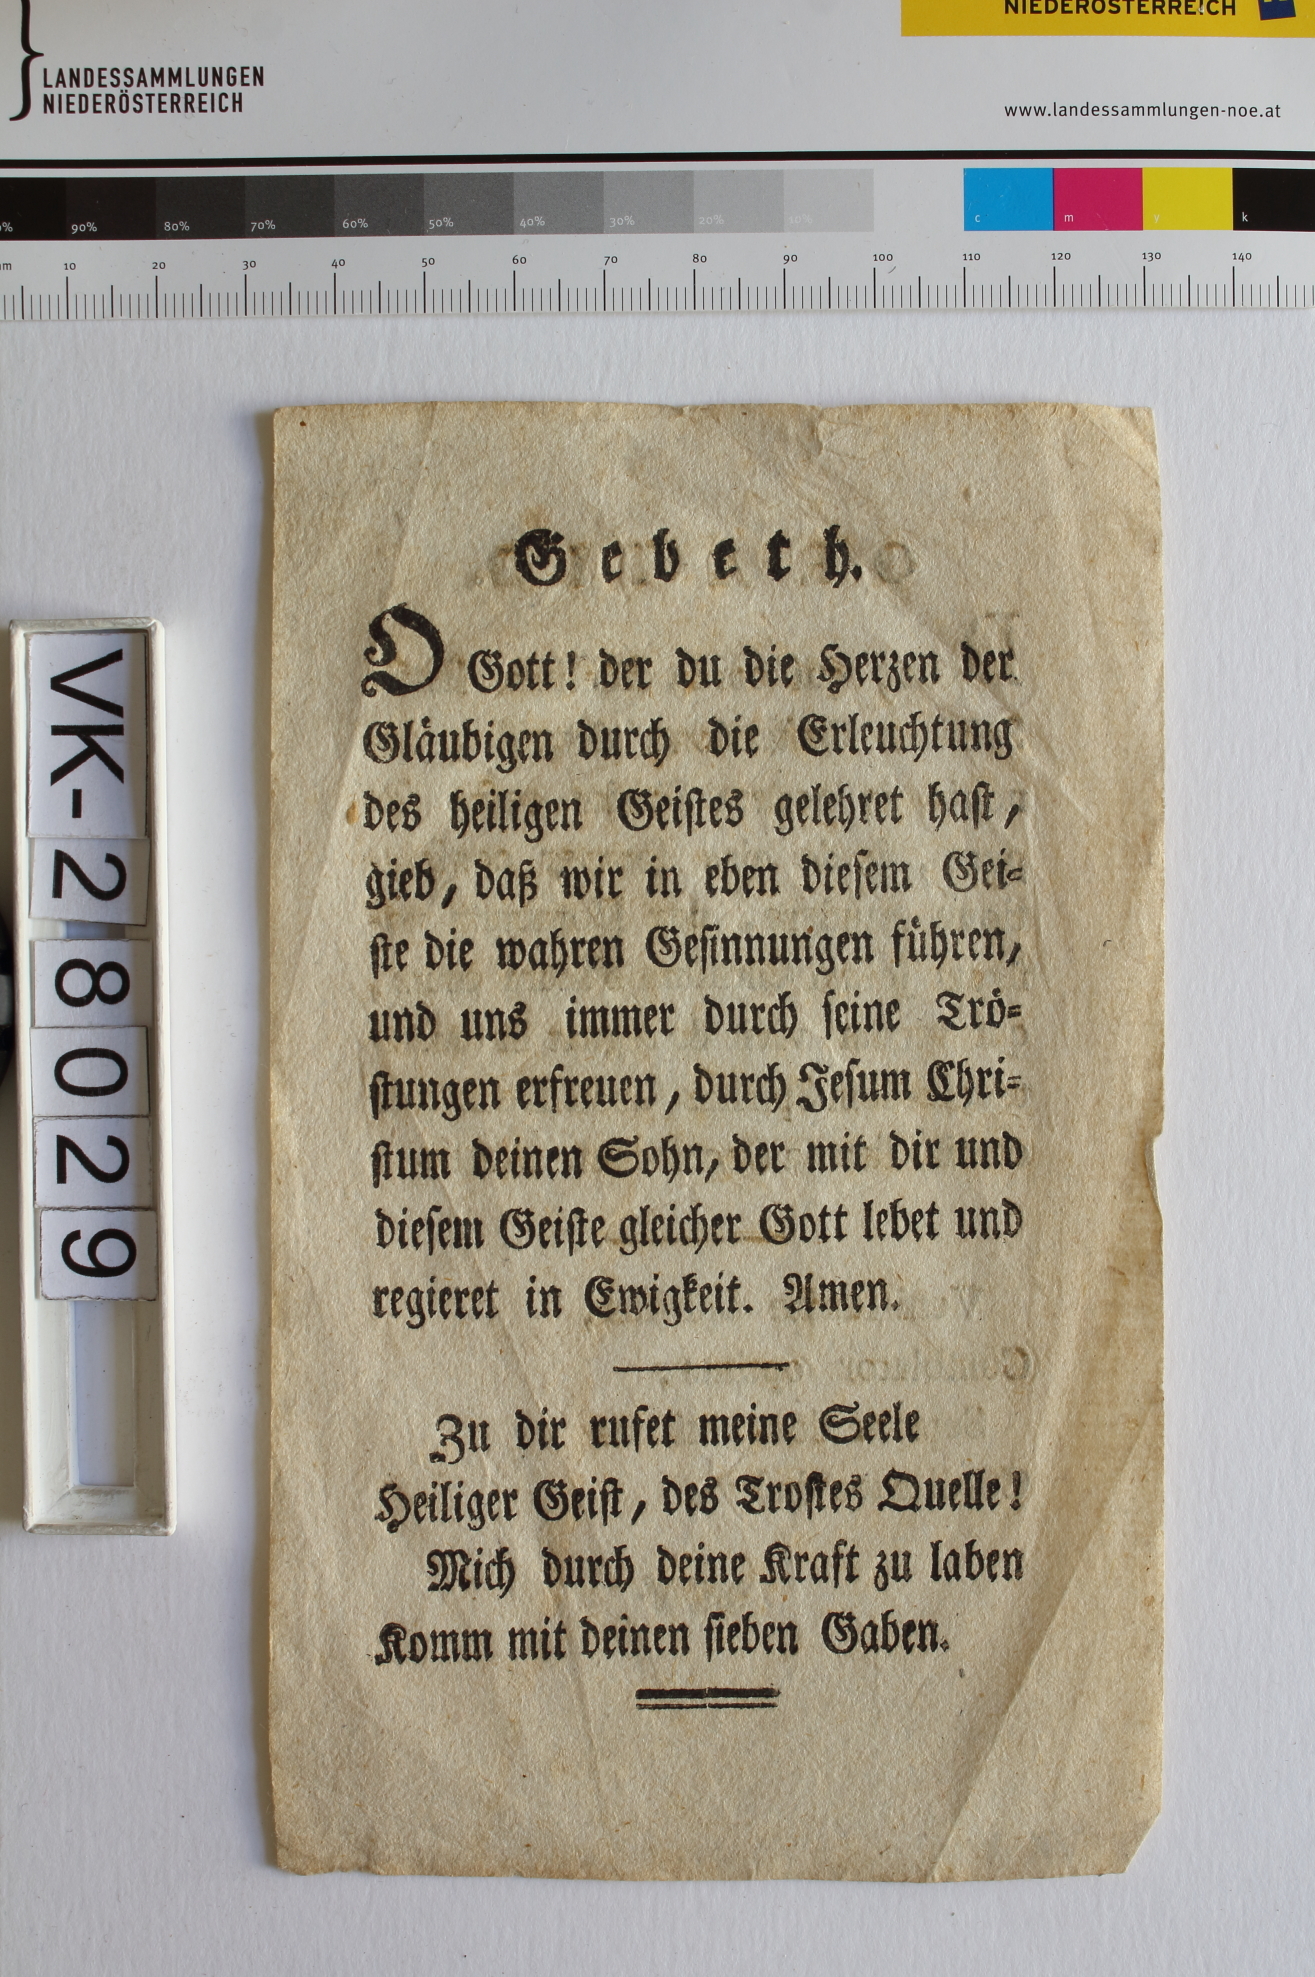 NIEDERÖSTERREICH
LANDESSAMMLUNGEN
NIEDERÖSTERREICH
www.landessammlungen-noe.at
90% 80% 70% 60% 50% 40% 30% 20% 10% c m y k
10 20 30 40 50 60 70 80 90 100 110 120 130 140
VK-28029
Gebeth.
O Gott! der du die Herzen der
Gläubigen durch die Erleuchtung
des heiligen Geistes gelehret hast,
gieb, daß wir in eben diesem Gei-
ste die wahren Gesinnungen führen,
und uns immer durch seine Trö-
stungen erfreuen, durch Jesum Chri-
stum deinen Sohn, der mit dir und
diesem Geiste gleicher Gott lebet und
regieret in Ewigkeit. Amen.
Zu dir rufet meine Seele
Heiliger Geist, des Trostes Quelle!
Mich durch deine Kraft zu laben
Komm mit deinen sieben Gaben.